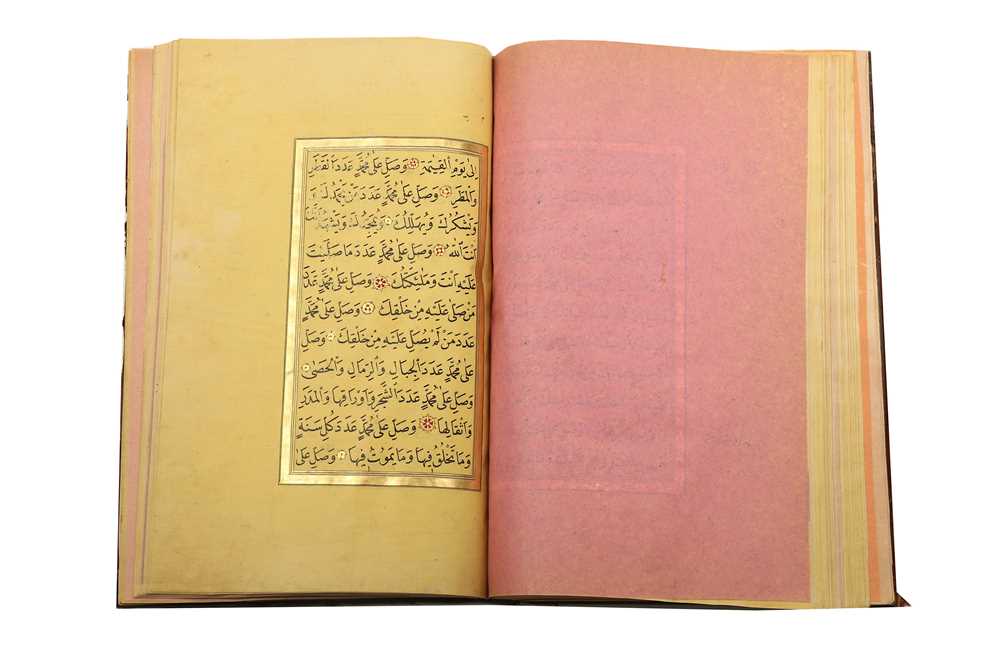 اِلىٰ يَوْمِ الْقِيٰمَةِ وَصَلِّ عَلىٰ مُحَمَّدٍ عَدَدَ الْقَطْرِ
وَالْمَطَرِ وَصَلِّ عَلىٰ مُحَمَّدٍ عَدَدَ مَنْ يَحْمَدُكَ وَ
وَيَشْكُرُكَ وَيُهَلِّلُكَ وَيُمَجِّدُكَ وَيَشْهَدُ اَنَّكَ
اَنْتَ اللّٰهُ وَصَلِّ عَلىٰ مُحَمَّدٍ عَدَدَ مَا صَلَّيْتَ
عَلَيْهِ اَنْتَ وَمَلٰئِكَتُكَ وَصَلِّ عَلىٰ مُحَمَّدٍ عَدَدَ
مَنْ صَلّىٰ عَلَيْهِ مِنْ خَلْقِكَ وَصَلِّ عَلىٰ مُحَمَّدٍ
عَدَدَ مَنْ لَمْ يُصَلِّ عَلَيْهِ مِنْ خَلْقِكَ وَصَلِّ
عَلىٰ مُحَمَّدٍ عَدَدَ الْجِبَالِ وَالرِّمَالِ وَالْحَصٰى
وَصَلِّ عَلىٰ مُحَمَّدٍ عَدَدَ الشَّجَرِ وَاَوْرَاقِهَا وَالْمَدَرِ
وَاَثْقَالِهَا وَصَلِّ عَلىٰ مُحَمَّدٍ عَدَدَ كُلِّ سَنَةٍ
وَمَا تَخْلُقُ فِيهَا وَمَا يَمُوتُ فِيهَا وَصَلِّ عَلىٰ